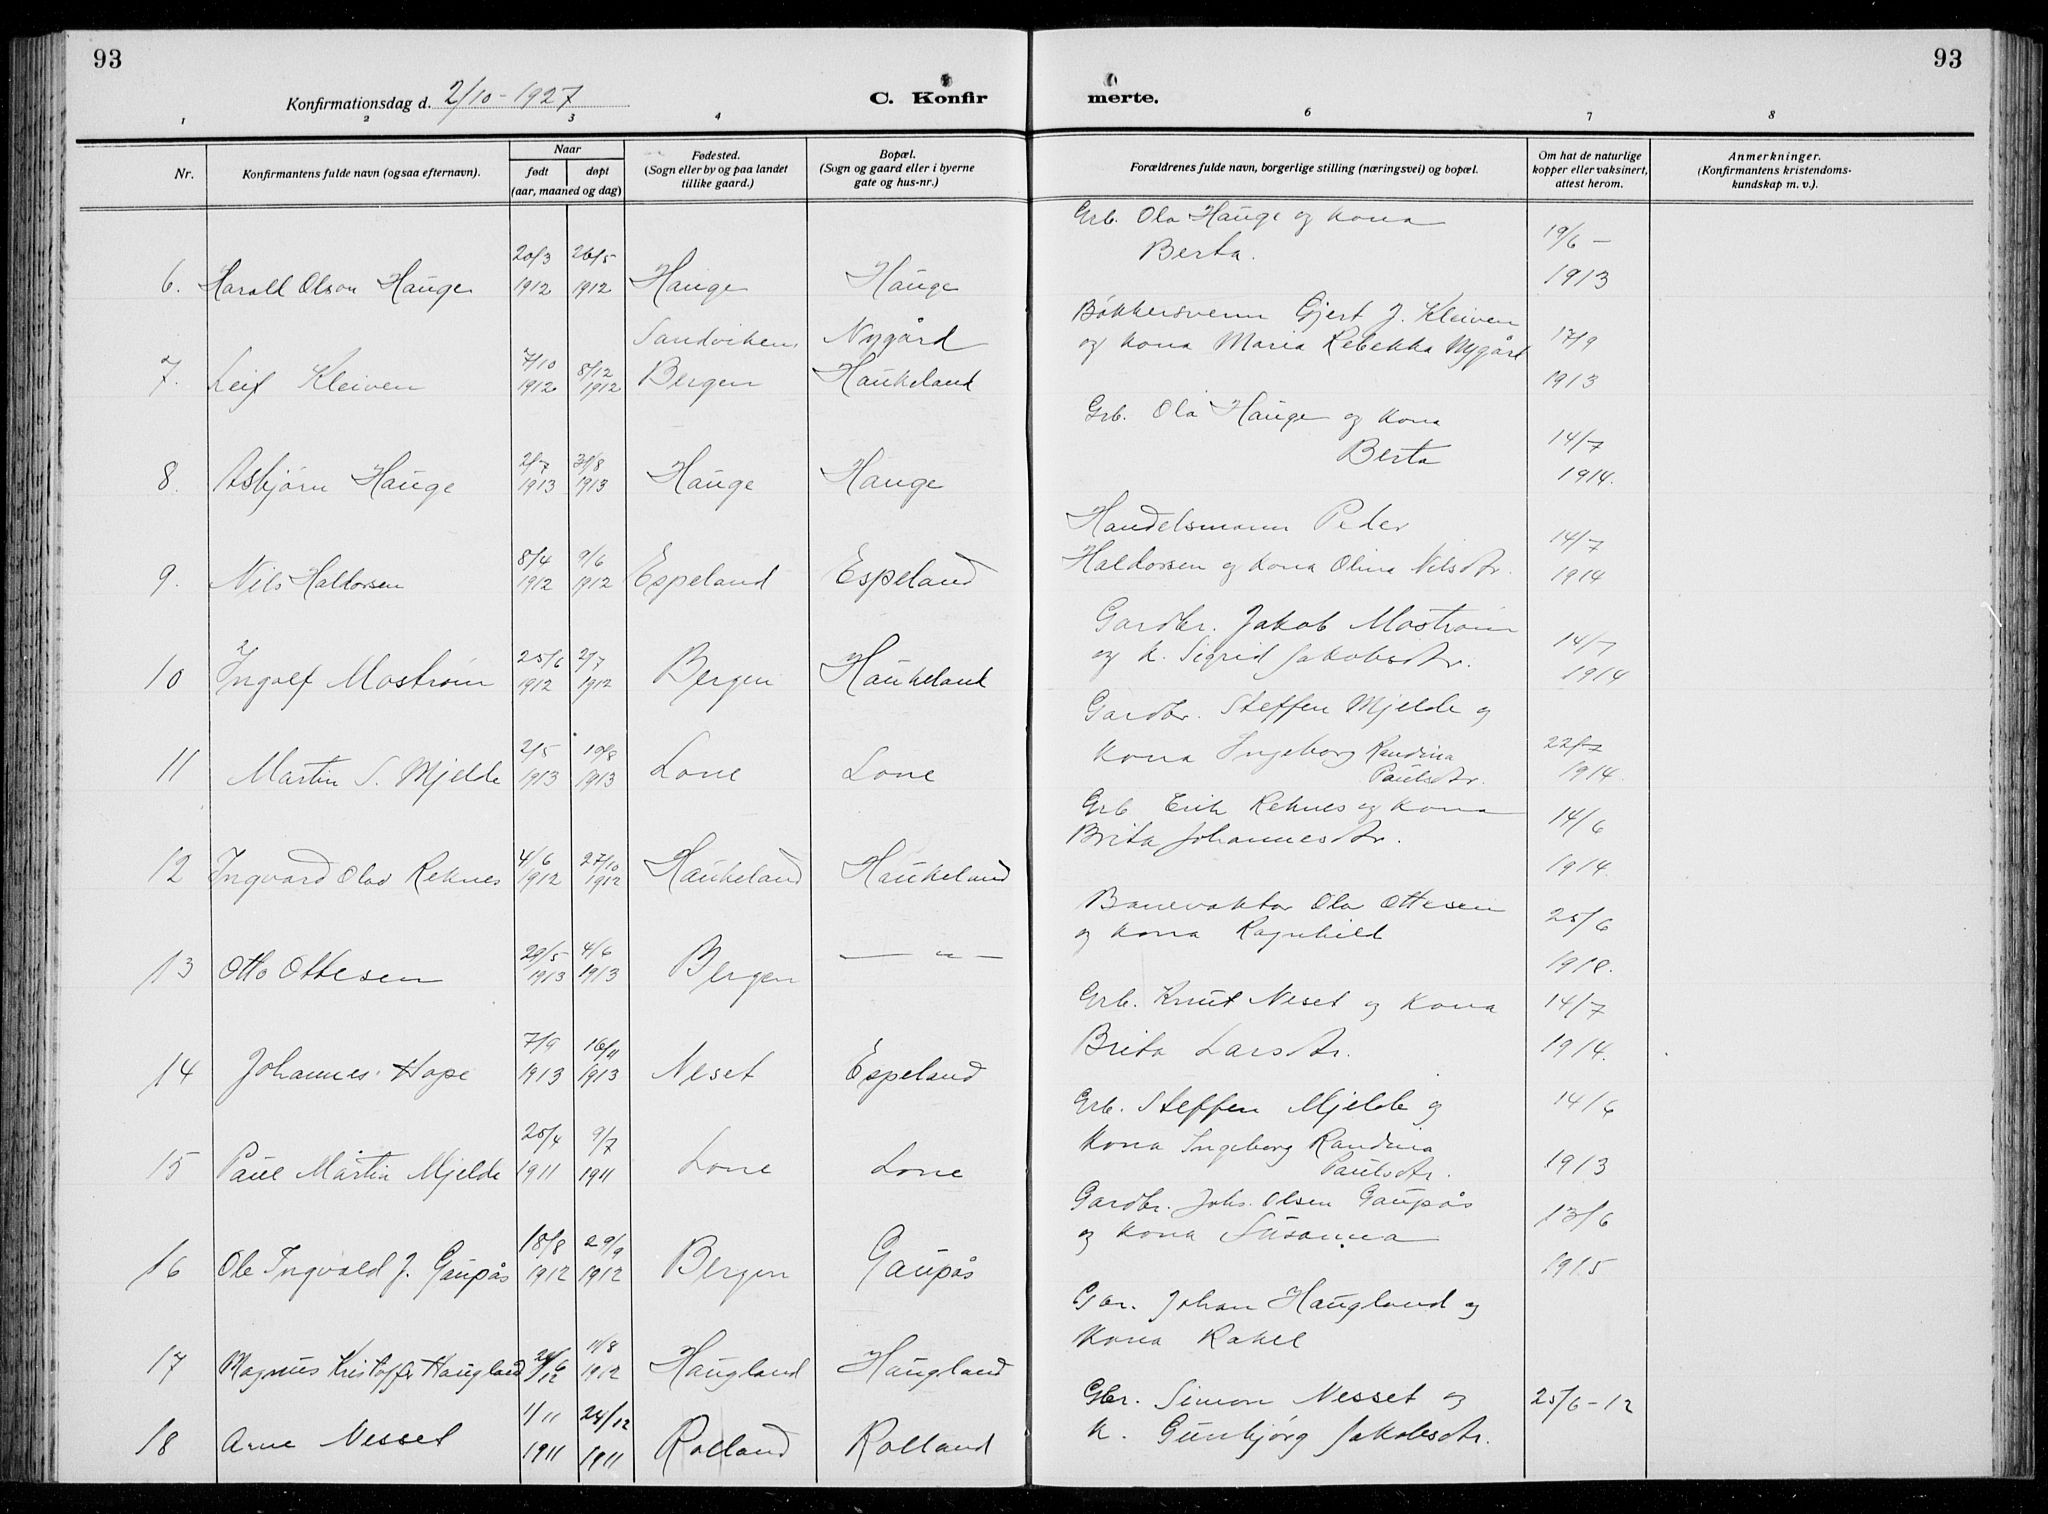 93
93
Konfirmationsdag d. 2/10 - 1927
C. Konfir
merte.
1 2 3 4 6 7 8
Nr.
Konfirmantens fulde navn (ogsaa efternavn).
Naar
født
døpt
(aar, maaned og dag)
Fødested.
(Sogn eller by og paa landet
tillike gaard.)
Bopæl.
(Sogn og gaard eller i byerne
gate og hus-nr.)
Forældrenes fulde navn, borgerlige stilling (næringsvei) og bopæl.
Om hat de naturlige
kopper eller vaksinert,
attest herom.
Anmerkninger.
(Konfirmantens kristendoms-
kundskap m. v.).
6. Harald Olson Hauge 20/3 1912 26/5 1912 Hauge Hauge
Grb. Ola Hauge og kona
Berta.
19/6 -
1913
7. Leif Kleiven 7/10 1912 8/12 1912 Sandviken Bergen Nygård Haukeland
Bøkkersvenn Gjert J. Kleiven
og kona Maria Rebekka Nygård
17/9
1913
8. Asbjørn Hauge 2/7 1913 31/8 1913 Hauge Hauge
Grb. Ola Hauge og kona
Berta
14/7
1914.
9. Nils Haldorsen 8/4 1912 9/6 1912 Espeland Espeland
Handelsmann Peder
Haldorsen og kona Olina Nilsdtr.
14/7
1914
10 Ingolf Mostrøm 25/6 1912 2/7 1912 Bergen Haukeland
Gardbr. Jakob Mostrøm
og k. Sigrid Jakobsdtr.
14/7
1914
11 Martin S. Mjelde 2/5 1913 10/8 1913 Lone Lone
Gardbr. Steffen Mjelde og
kona Ingeborg Randina
Paulsdtr.
22/7
1914.
12 Ingvard Olav Reknes 4/6 1912 27/10 1912 Haukeland Haukeland
Grb. Erik Reknes og kona
Brita Johannesdtr.
14/6
1914.
13 Otto Ottesen 29/5 1913 4/6 1913 Bergen — " —
Banevaktar Ola Ottesen
og kona Ragnhild
25/6
1918.
14 Johannes Hope 7/9 1913 16/11 1913 Neset Espeland
Grb. Knut Neset og kona
Brita Larsdtr.
14/7
1914.
15 Paul Martin Mjelde 25/4 1911 9/7 1911 Lone Lone
Grb. Steffen Mjelde og
kona Ingeborg Randina
Paulsdtr.
14/6
1913
16 Ole Ingvald J. Gaupås 18/8 1912 29/9 1912 Bergen Gaupås
Gardbr. Johs. Olsen Gaupås
og kona Susanna
13/6
1915
17 Magnus Kristoffer Haugland 6/12 11/8 1912 Haugland Haugland
Gbr. Johan Haugland og
kona Rakel
18 Arne Nesset 1/11 1911 24/12 1911 Rolland Rolland
Gbr. Simon Nesset og
k. Gunbjørg Jakobsdtr.
25/6 - 12